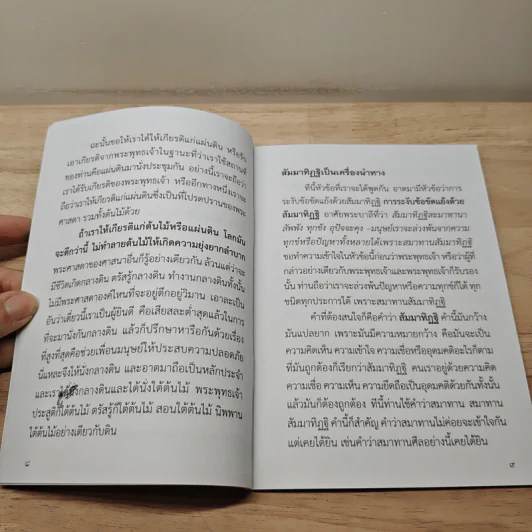 ฉะนั้นขอให้เราได้ให้เกียรติแก่แผ่นดิน หรือรับ
เอาเกียรติจากพระพุทธเจ้าในฐานะที่ว่าเราใช้สถานที่
ของท่านคือแผ่นดินมานั่งประชุมกัน อย่างนี้เราจะถือว่า
เราได้รับเกียรติของพระพุทธเจ้า หรืออีกทางหนึ่งเราจะ
ถือว่าเราให้เกียรติแก่แผ่นดินซึ่งเป็นที่โปรดปรานของพระ
ศาสดา รวมทั้งต้นไม้ด้วย
ถ้าเราให้เกียรติแก่ต้นไม้หรือแผ่นดิน โลกมัน
จะดีกว่านี้ ไม่ทำลายต้นไม้ให้เกิดความยุ่งยากลำบาก
พระศาสดาของศาสนาอื่นก็รู้อย่างเดียวกัน ล้วนแต่ว่าจะ
มีชีวิตเกิดกลางดิน ตรัสรู้กลางดิน ทำงานกลางดินทั้งนั้น
ไม่มีพระศาสดาองค์ไหนที่จะอยู่ตึกอยู่วิมาน เอาละเป็น
อันว่าเดี๋ยวนี้เราเป็นผู้ยินดี คือเสียสละต่ำสุดแล้วในการ
ที่จะมานั่งกันกลางดิน แล้วก็ปรึกษาหารือกันด้วยเรื่อง
ที่สูงที่สุดคือช่วยเพื่อนมนุษย์ให้ประสบความปลอดภัย
นี่แหละจึงให้นั่งกลางดิน และอาตมาถือเป็นหลักประจำ
และเราได้นั่งกลางดินและได้นั่งใต้ต้นไม้ พระพุทธเจ้า
ประสูติก็ใต้ต้นไม้ ตรัสรู้ก็ใต้ต้นไม้ สอนใต้ต้นไม้ นิพพาน
ใต้ต้นไม้อย่างเดียวกับดิน
๘
สัมมาทิฏฐิเป็นเครื่องนำทาง
ทีนี้หัวข้อที่เราจะได้พูดกัน อาตมามีหัวข้อว่าการ
ระงับข้อขัดแย้งด้วยสัมมาทิฏฐิ การระงับข้อขัดแย้งด้วย
สัมมาทิฏฐิ อาศัยพระบาลีที่ว่า สัมมาทิฏฐิสะมาทานา
สัพพัง ทุกขัง อุปัจจะคุง -มนุษย์เราจะล่วงพ้นจากความ
ทุกข์หรือปัญหาทั้งหลายได้เพราะสมาทานสัมมาทิฏฐิ
ขอทำความเข้าใจในหัวข้อนี้ก่อนว่าพระพุทธเจ้า หรือว่าผู้ที่
กล่าวอย่างเดียวกับพระพุทธเจ้าและพระพุทธเจ้าก็รับรอง
นั้น ท่านถือว่าเราจะล่วงพ้นปัญหาหรือความทุกข์ก็ได้ ทุก
ชนิดทุกประการได้ เพราะสมาทานสัมมาทิฏฐิ
คำที่ต้องสนใจก็คือคำว่า สัมมาทิฏฐิ คำนี้มันกว้าง
มันแปลยาก เพราะมันมีความหมายกว้าง คือมันจะเป็น
ความคิดเห็น ความเข้าใจ ความเชื่อหรืออุดมคติอะไรก็ตาม
ที่มันถูกต้องก็เรียกว่าสัมมาทิฏฐิ คนเราอยู่ด้วยความคิด
ความเชื่อ ความเห็น ความยึดถือเป็นอุดมคติด้วยกันทั้งนั้น
แล้วมันก็ต้องถูกต้อง ทีนี้ท่านใช้คำว่าสมาทาน สมาทาน
สัมมาทิฏฐิ คำนี้ก็สำคัญ คำว่าสมาทานไม่ค่อยจะเข้าใจกัน
แต่เคยได้ยิน เช่นคำว่าสมาทานศีลอย่างนี้เคยได้ยิน
๙